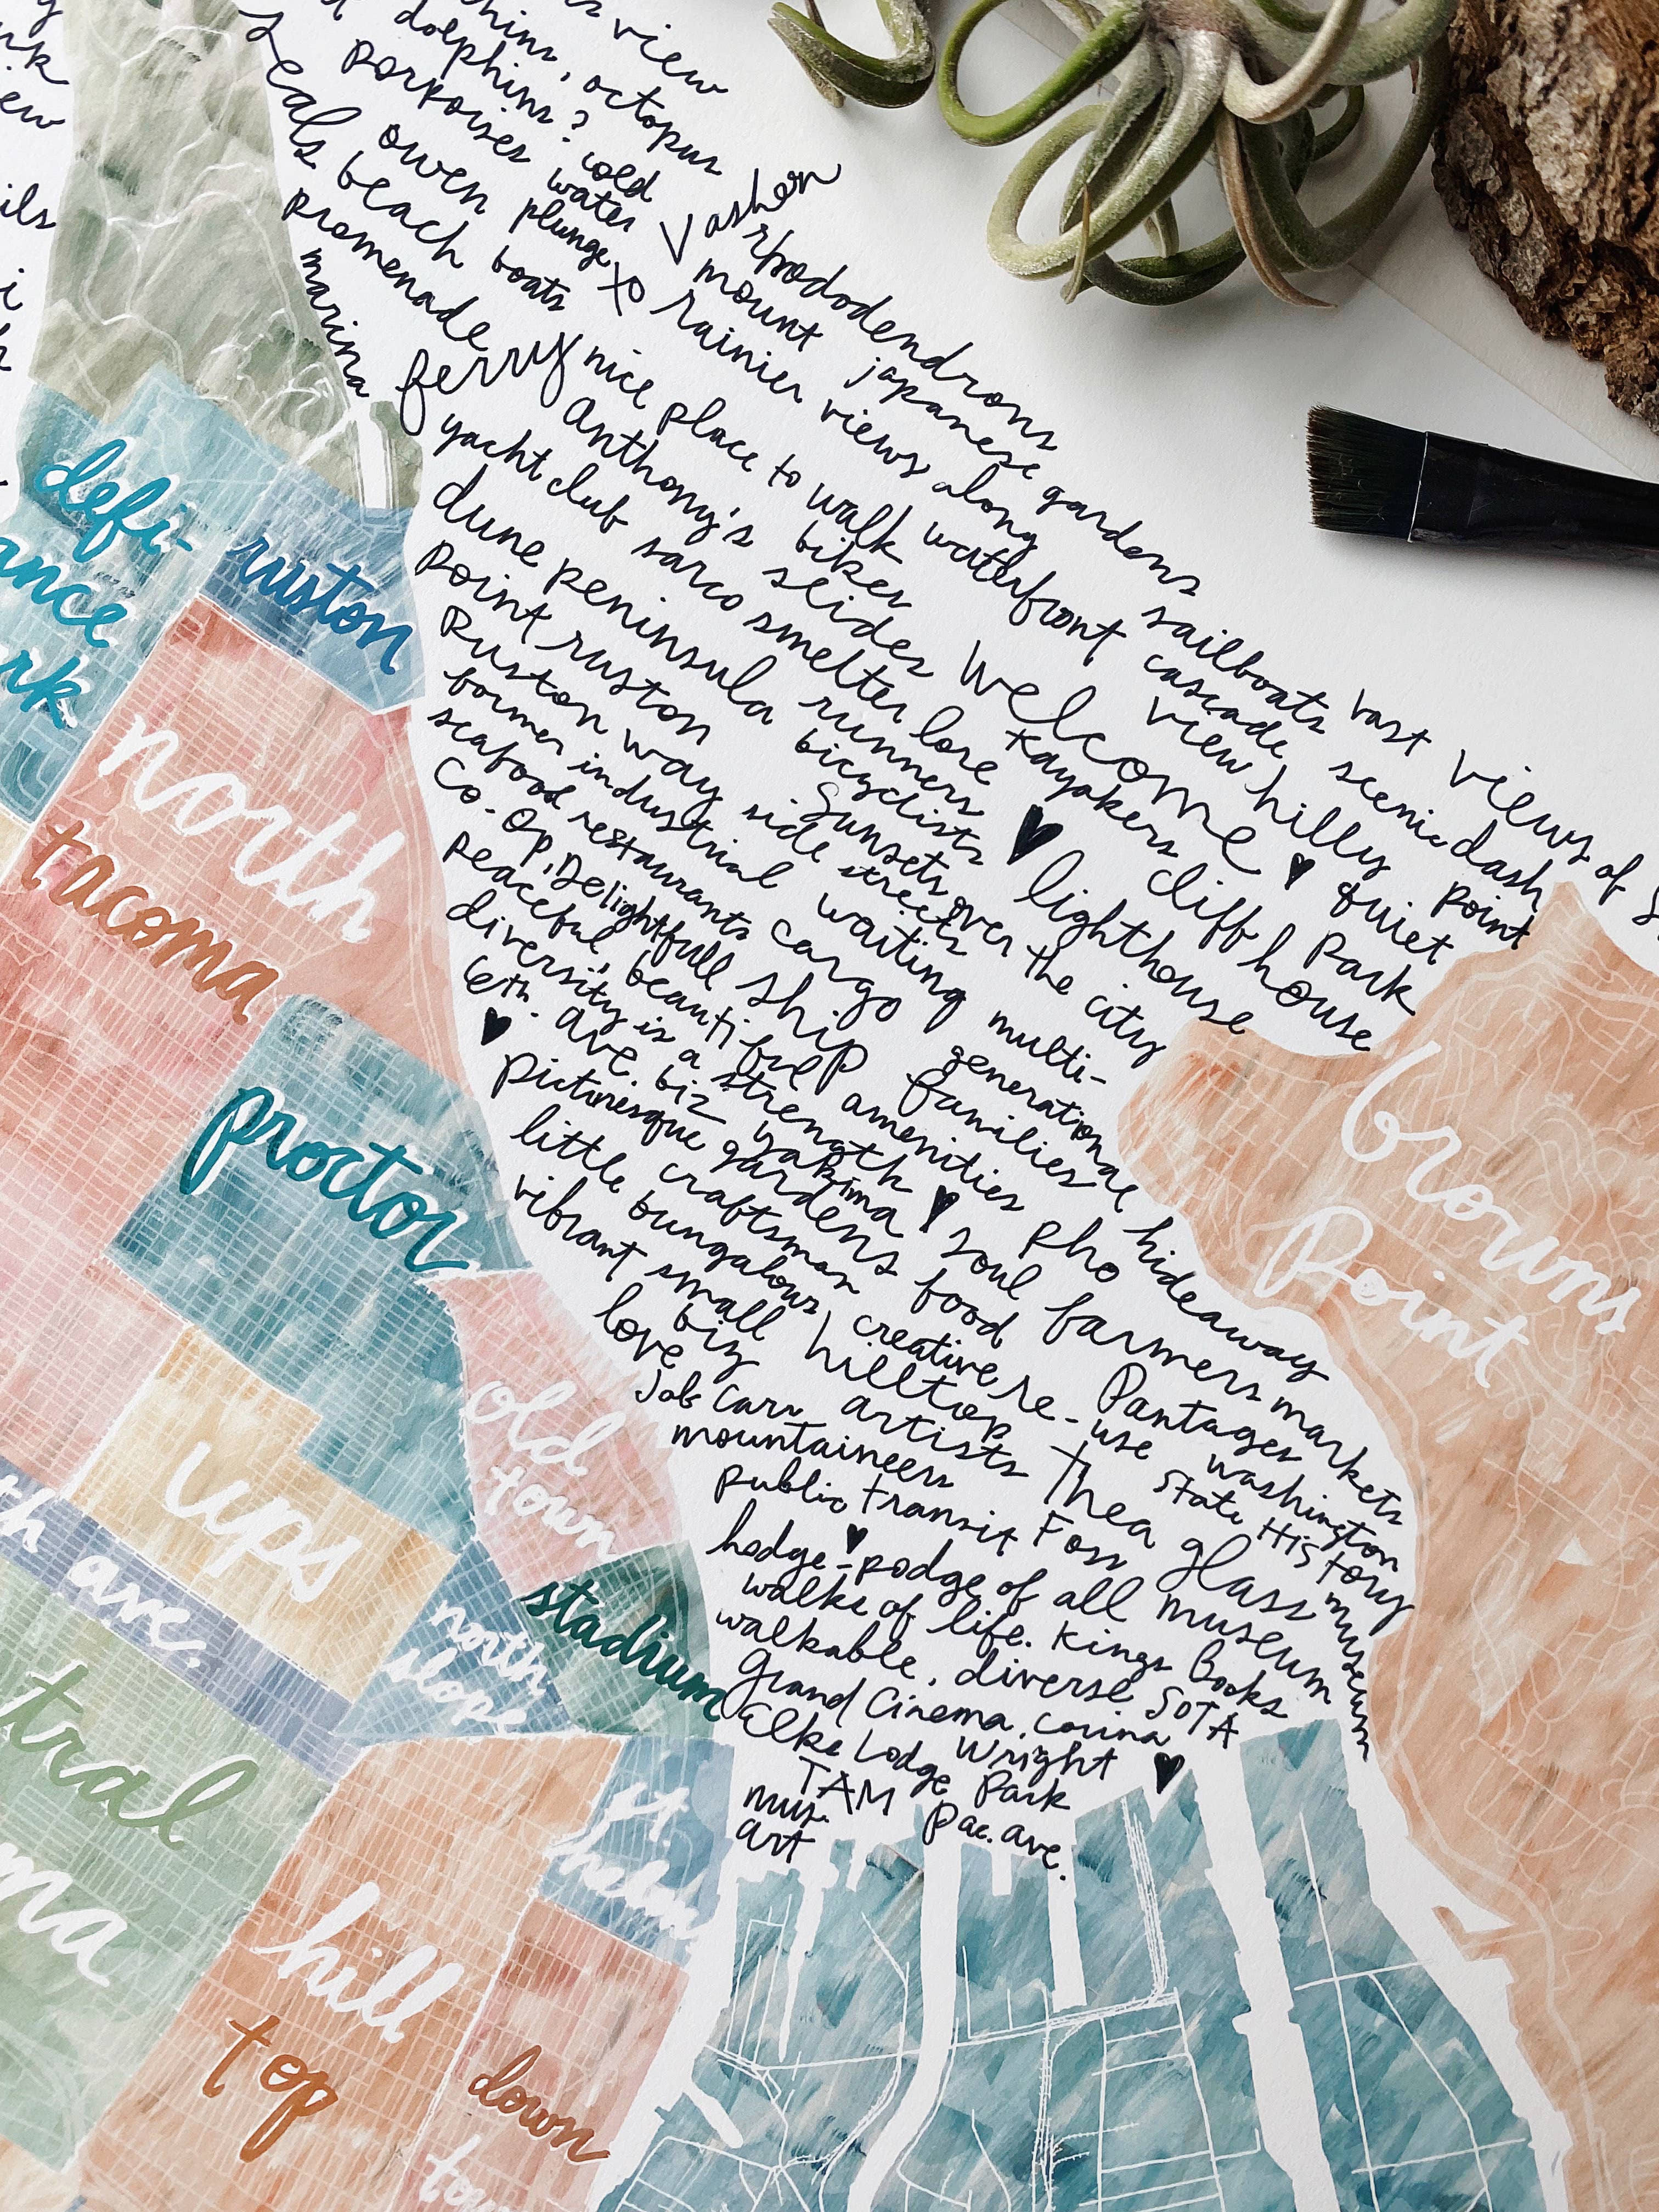 view
octopus
dolphins?
porpoises
seals
owen beach
cold water plunge
boats
xo
Vashon
promenade
marina
ferry
rhododendrons
mount rainier views along waterfront
japanese gardens
nice place to walk
Anthony's
bikes
yacht club
slides
sarco smelter lore
dune peninsula
runners
bicyclists
point ruston
Ruston way
sunsets over the city
side streets
former industrial
waiting
seafood restaurants
cargo ship
Co-Op, Delightfull
peaceful, beautiful
diversity is a strength
6th. Ave. biz
yakima
amenities
welcome
kayakers
sailboats
cascade view
hilly
vast views of
scenic dash point
quiet park
cliff house
lighthouse
multi-
generational
families
picturesque gardens
little craftsman
bungalows
soul food
pho
hideaway
farmers markets
vibrant small
biz love
hilltop
artists
creative re-use
Pantages
washington
State History
museum
Job Carr
mountaineers
public transit
Thea Foss
glass museum
hodge-podge of all
walks of life. Kings Books
walkable, diverse SOTA
Grand Cinema, corina
Elks Lodge Wright
Park
TAM
mus.
art
pac. ave.
defi-
ance
ruston
north
tacoma
proctor
browns
Point
old
town
ups
ave.
north
slope
stadium
st.
helens
hill
top
down
town